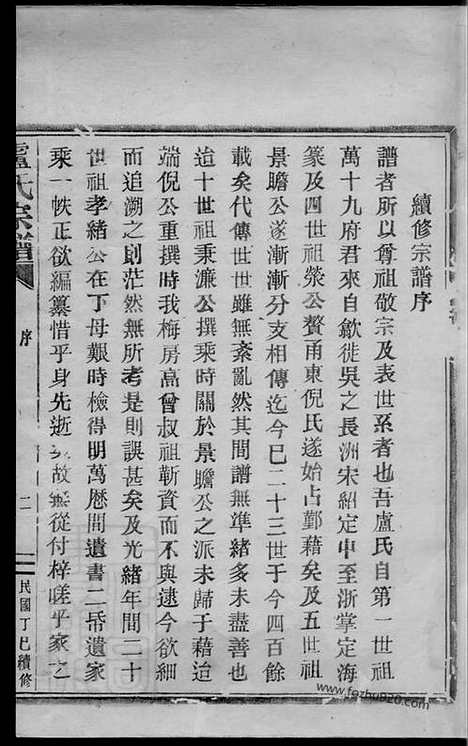 續修宗譜序
譜者所以尊祖敬宗及表世系者也吾盧氏自第一世祖
萬十九府君來自歙徙吳之長洲宋紹定中至浙掌定海
篆及四世祖榮公贅甬東倪氏遂始占鄞藉矣及五世祖
景瞻公遂漸漸分支相傳迄今已二十三世于今四百餘
載矣代傳世世雖無紊亂然其間譜無準緒多未盡善也
迨十世祖秉濂公撰乘時關於景瞻公之派未歸于藉迨
端倪公重撰時我梅房高曾叔祖靳資而不與逮今欲細
而追溯之則茫然無所考是則誤甚矣及光緒年間二十
世祖孝緒公在丁母艱時檢得明萬厯間遺書二帋遺家
乘一帙正欲編纂惜乎身先逝矣故無從付梓嗟乎家之
盧氏宗譜
序
二
民國丁巳續修
www.fozhu920.com